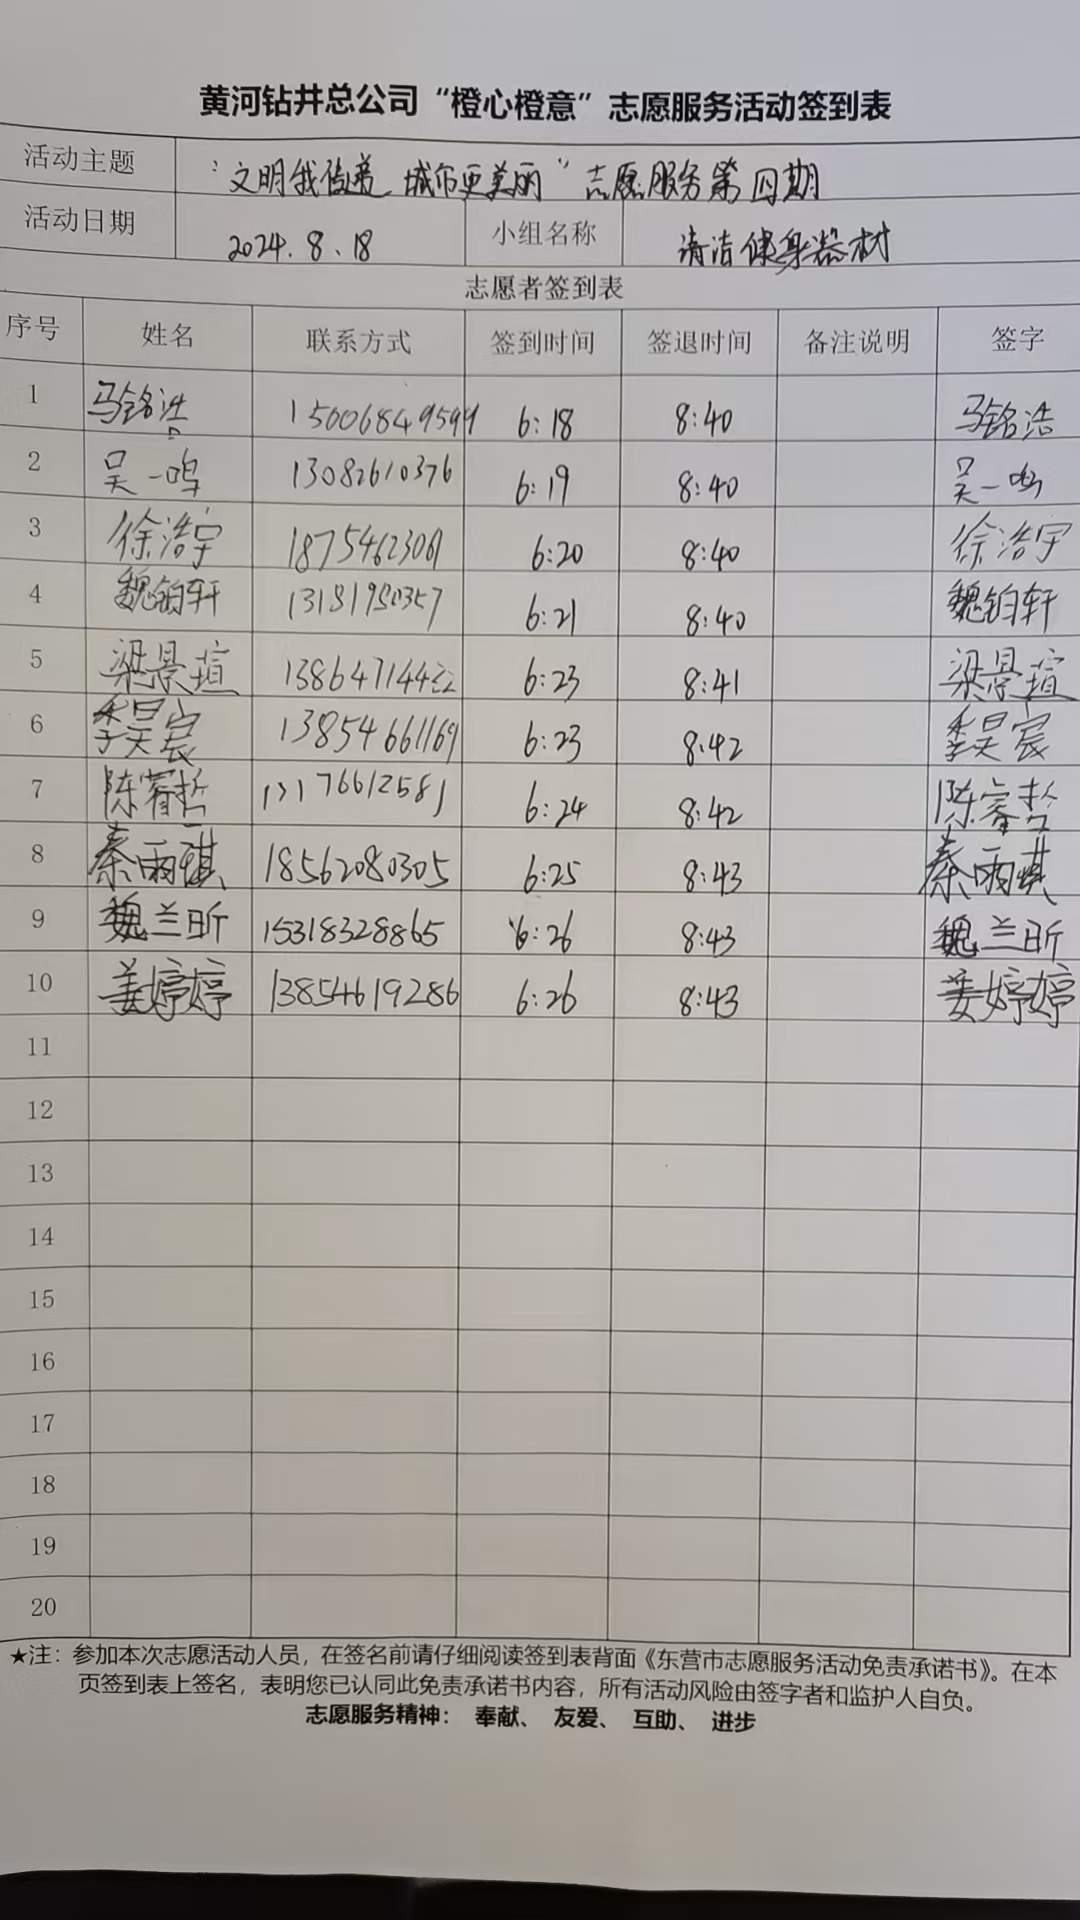 黄河钻井总公司“橙心橙意”志愿服务活动签到表
活动主题 “文明我传递 城市更美丽” 志愿服务第四期
活动日期 2024.8.18 小组名称 清洁健身器材
志愿者签到表
序号 姓名 联系方式 签到时间 签退时间 备注说明 签字
1 马铭浩 15006849599 6:18 8:40 马铭浩
2 吴一鸣 13082610376 6:19 8:40 吴一鸣
3 徐浩宇 6:20 8:40 徐浩宇
4 魏铂轩 6:21 8:40 魏铂轩
5 梁景瑄 6:23 8:41 梁景瑄
6 季昊宸 13854661169 6:23 8:42 季昊宸
7 陈睿哲 13176612581 6:24 8:42 陈睿哲
8 秦雨琪 18562080305 6:25 8:43 秦雨琪
9 魏兰昕 15318328865 6:26 8:43 魏兰昕
10 姜婷婷 13854619286 6:26 8:43 姜婷婷
11
12
13
14
15
16
17
18
19
20
★注：参加本次志愿活动人员，在签名前请仔细阅读签到表背面《东营市志愿服务活动免责承诺书》。在本
页签到表上签名，表明您已认同此免责承诺书内容，所有活动风险由签字者和监护人自负。
志愿服务精神： 奉献、 友爱、 互助、 进步